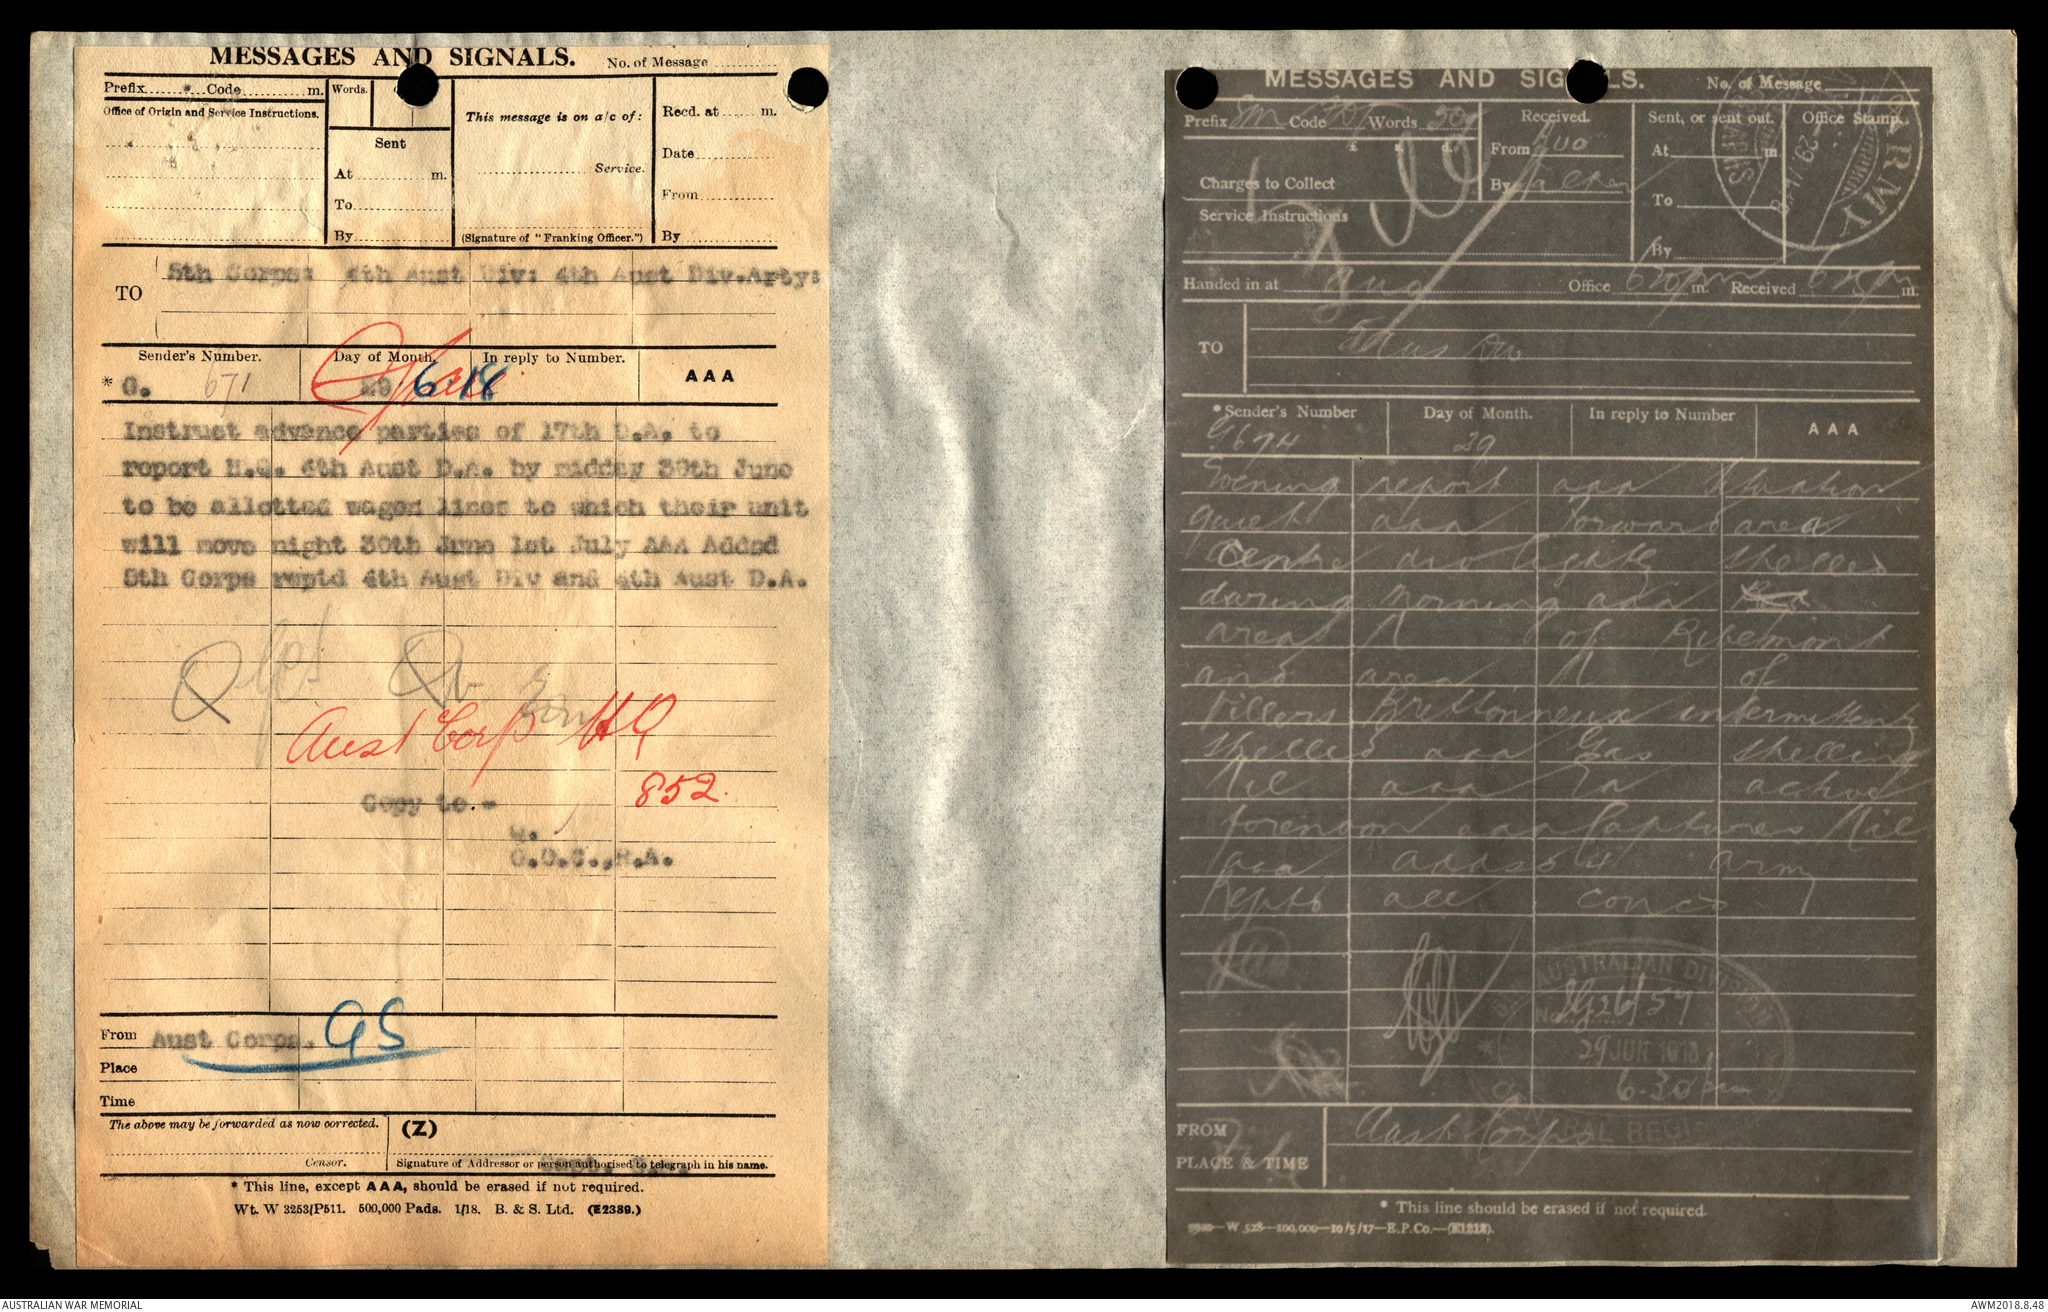 MESSAGES AND SIGNALS.
No. of Message
Prefix Code m.
Words.
Office of Origin and Service Instructions.
Sent
At m.
To
By
This message is on a/c of:
Service.
(Signature of "Franking Officer.")
Recd. at m.
Date
From
By
TO
5th Corps: 4th Aust Div: 4th Aust Div.Arty:
Sender's Number.
Day of Month.
In reply to Number.
AAA
* G. 671
29.6.18
Instruct advance parties of 17th D.A. to
report H.Q. 4th Aust D.A. by midday 30th June
to be allotted wagon lines to which their unit
will move night 30th June 1st July AAA Added
5th Corps reptd 4th Aust Div and 4th Aust D.A.
Aust Corps HQ
852.
Copy to.-
G.O.C.,R.A.
From Aust Corps. GS
Place
Time
The above may be forwarded as now corrected.
(Z)
Censor.
Signature of Addressor or person authorised to telegraph in his name.
* This line, except AAA, should be erased if not required.
Wt. W 3253/P511. 500,000 Pads. 1/18. B. & S. Ltd. (E2389.)
MESSAGES AND SIGNALS.
No. of Message
Prefix Sm Code Words 50
£ s. d.
Charges to Collect
Service Instructions
Received.
From
By
Sent, or sent out.
At m
To
By
Office Stamp.
ARMY
SIGNALS
Handed in at Office 620 pm m. Received 625 pm m.
TO
5 Aus Div
*Sender's Number
Day of Month.
In reply to Number
AAA
G674
29
Evening report aaa Situation
quiet aaa Forward area
Centre div lightly shelled
during morning aaa
area N of Ribemont
and area N of
Villers Brettonneux intermittently
shelled aaa Gas shelling
Nil aaa EA active
forenoon aaa Captures Nil
aaa adds 4 army
Reptd all concd
AUSTRALIAN DIVISION
No. G26/57
29 JUN 1918
6.30 pm
GENERAL REGISTRY
FROM
Aust Corps
PLACE & TIME
* This line should be erased if not required.
W 528—100,000—10/5/17—E.P.Co.—(E1213).
AUSTRALIAN WAR MEMORIAL
AWM2018.8.48